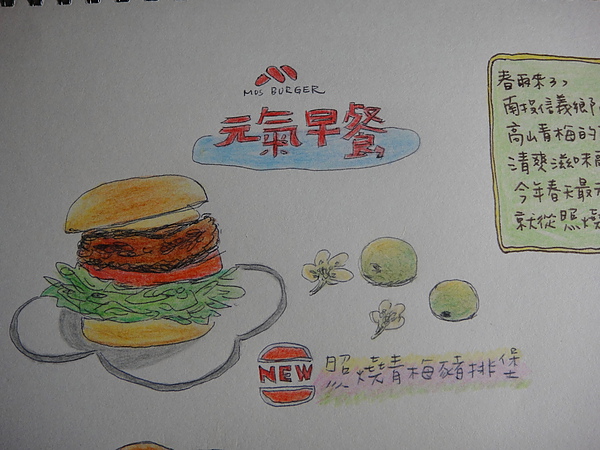 MOS BURGER
元氣早餐
春雨來了,
南投信義鄉
高山青梅的
清爽滋味
今年春天最
就從照燒
NEW
照燒青梅豬排堡